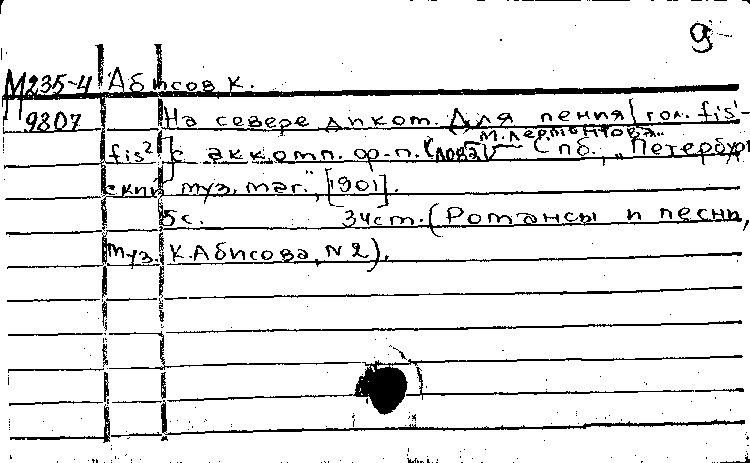 9
М235-4 Абисов К.
9807 На севере диком. Для пения [гол. fis¹-
М. Лермонтова
fis²] с аккомп. ф-п. (слова) Спб., „Петербург
ский муз. маг.", [1901].
5 с. 34 см. (Романсы и песни,
муз. К. Абисова, № 2).